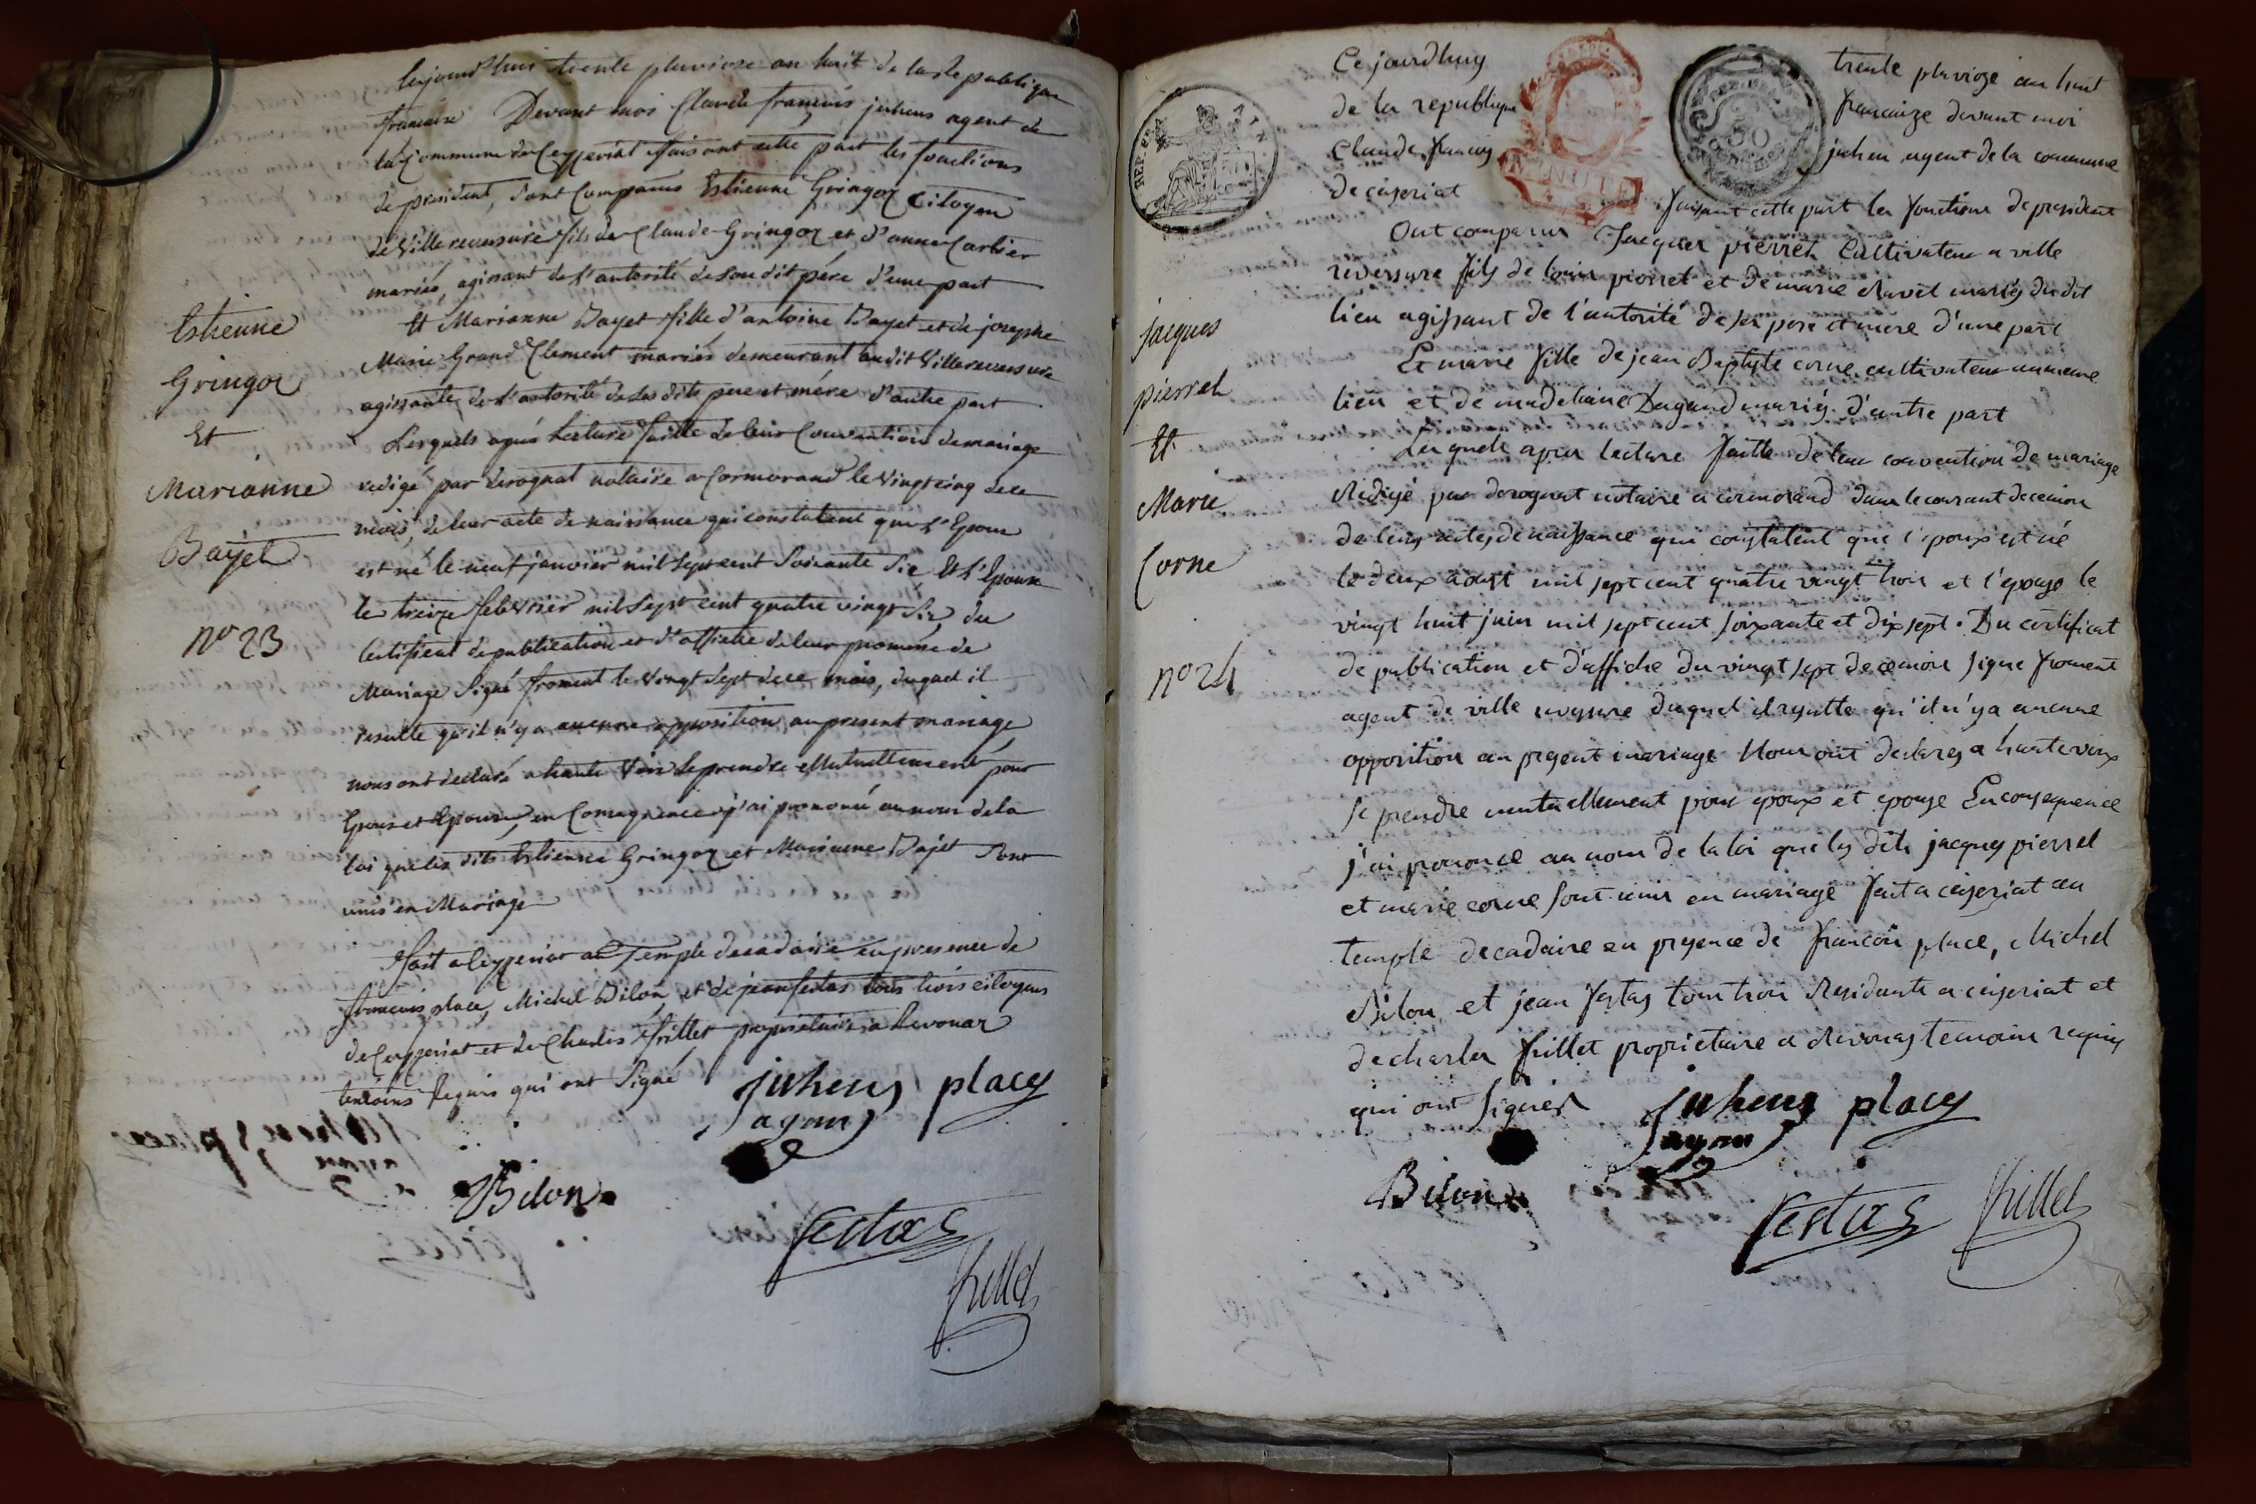 Cejourd'huy trente pluviose an huit de la Republique
francaise Devant moi Claude francois juhens agent de
la Commune de Ceyzeriat faisant cette part les fonctions
de president, Sont Comparus Estienne Gringoz Citoyen
de Villereversure fils de Claude Gringoz et d'anne Carbier
mariés, agissant de l'autorité de Son dit pére d'une part
Et Marianne Bayet fille d'antoine Bayet et de josephe
Marie Grand Clement mariés demeurant audit Villereversure
agissante de l'autorité de Ses dits pere et mére d'autre part
Lesquels aprés Lecture faitte de leur Convention de mariage
redigé par derognat notaire a Cormorand le Vingt cinq de ce
mois, de leur acte de naissance qui constatent que L'Epoux
est né le neuf janvier mil Sept cent Soixante Six Et L'Epouse
le treize febvrier mil Sept cent quatre vingt Six, du
Certificat de publication et d'affiche de leur promesse de
Mariage Signé froment le Vingt Sept de ce mois, duquel il
resulte qu'il n'y a aucune opposition au present mariage
nous ont declaré a haute Voix Se prendre Mutuellement pour
Epoux et Epouse, en Consequence j'ai prononcé au nom de la
loi que les dits Estienne Gringoz et Marianne Bajet Sont
unis en Mariage
Fait a Ceyzeriat au Temple decadaire en presence de
francois place, Michel Bilon, et de jean festas tous trois citoyens
de Ceyzeriat et de Charles frillet proprietaire a Revonas
temoins Requis qui ont Signé
juhens placy
agent
Bilon
festas
frillet
Estienne
Gringoz
Et
Marianne
Bayet
N° 23
Ce jourdhuy trente pluvioze an huit
de la republique francaize devant moi
Claude francois juhen agent de la commune
de ceizeriat faisant cette part les fonctions de president
Ont comparus Jacques pierret Cultivateur a ville
reversure fils de louis pierret et de marie ravet mariés du dit
lieu agissant de l'autorité de ses pere et mere d'une part
Et marie fille de jean Baptiste corne cultivateur au meme
lieu et de madelaine Dagand mariés d'autre part
Lesquels apres lecture faitte de leur convention de mariage
Redigé par derognat notaire a cormorand dans le courant de ce mois
de leurs actes de naissance qui constatent que l'epoux est né
le deux aoust mil sept cent quatre vingt trois et l'epouse le
vingt huit juin mil sept cent soixante et dix sept. Du certificat
de publication et d'affiche du vingt sept de ce mois signe froment
agent de ville reversure duquel il resulte qu'il n'y a aucune
opposition au present mariage Nous ont declarés a haute voix
se prendre mutuellement pour epoux et epouse En consequence
j'ai prononcé au nom de la loi que les dits jacques pierret
et marie corne sont unis en mariage fait a ceizeriat au
temple decadaire en presence de francois place, Michel
Bilon et jean festas tous trois Residants a ceizeriat et
de charles frillet proprietaire a Revonas temoins requis
qui ont signés
juhens placy
agent
Bilon
festas frillet
jacques
pierret
Et
Marie
Corne
n° 24